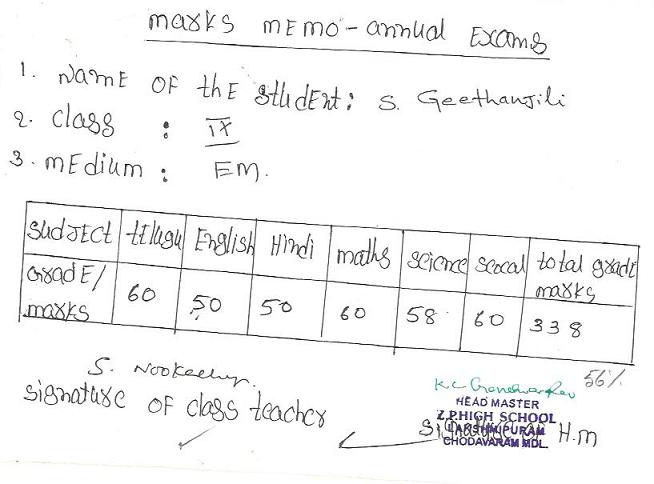 marks mEmo - annual Exams
1. NamE OF thE studEnt: S. Geethanjili
2. class : IX
3. mEdium : EM.
SubJECT tElugu English Hindi maths science soocal total gradE marks
GradE/ marks 60 50 50 60 58 60 338
56%
S. Nookeelu
signature OF class teacher
HEAD MASTER
Z.P.HIGH SCHOOL
LAKSHMIPURAM
CHODAVARAM MDL.
Signature H.M